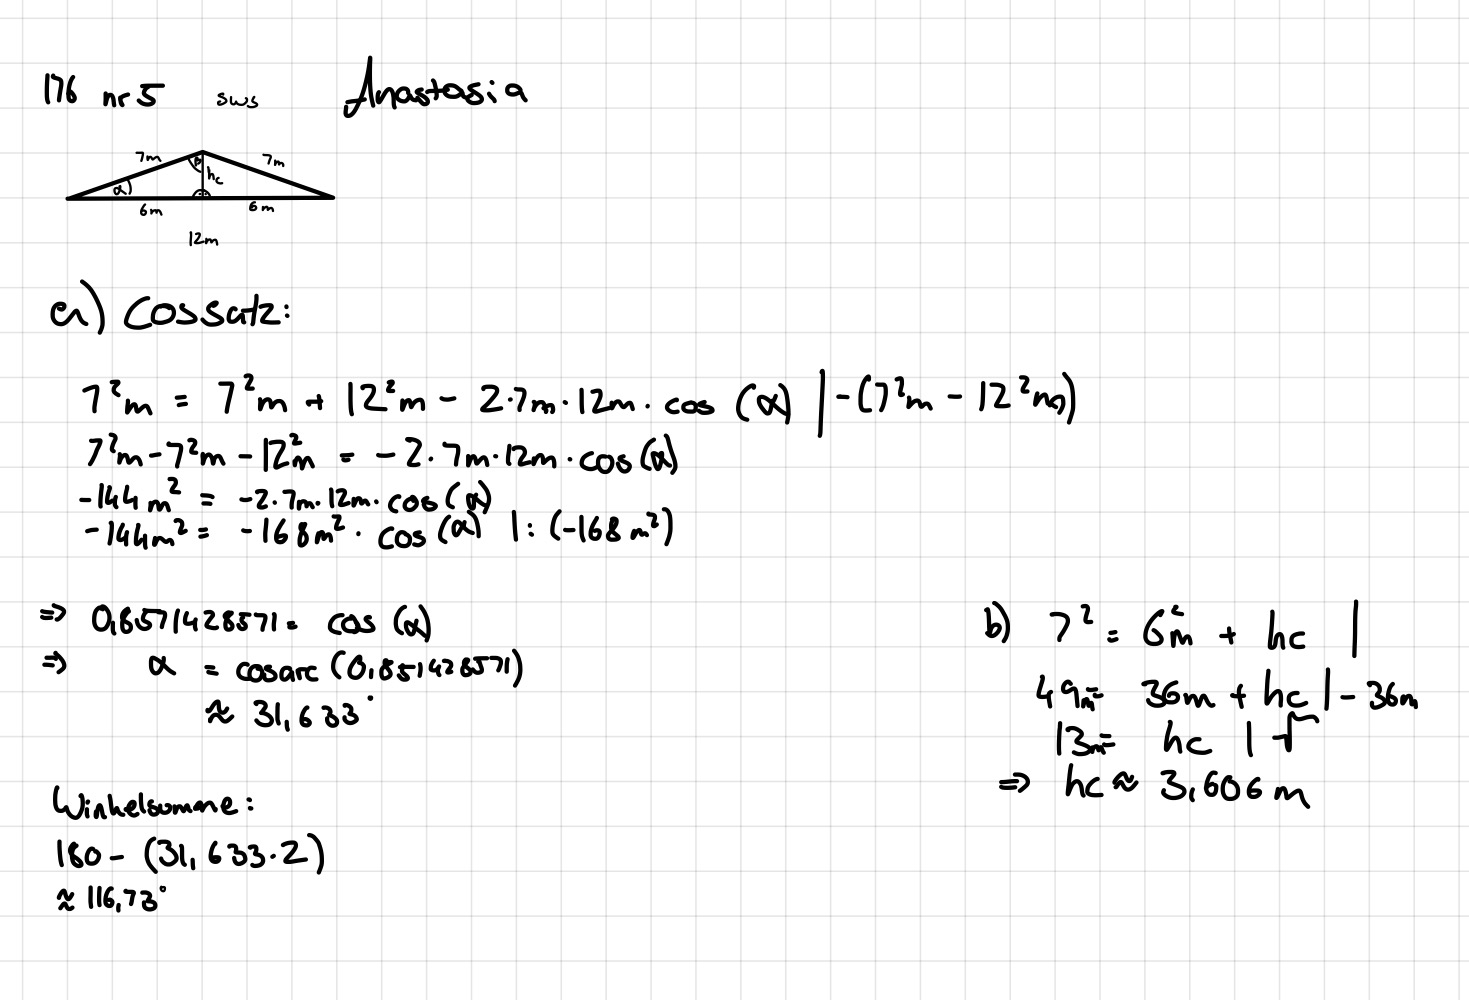 176 nr 5 sws Anastasia
7m 7m
β
hc
α
6m 6m
12m
a) Cossatz:
7²m = 7²m + 12²m - 2·7m·12m·cos (α) | -(7²m - 12²m)
7²m-7²m-12²m = -2·7m·12m·cos(α)
-144m² = -2·7m·12m·cos(α)
-144m² = -168m²·cos(α) |:(-168m²)
=> 0,8571428571 = cos(α)
=> α = cosarc(0,851428571)
≈ 31,633°
Winkelsumme:
180 - (31,633·2)
≈ 116,73°
b) 7² = 6²m + hc |
49m = 36m + hc | - 36m
13m = hc | √
=> hc ≈ 3,606m